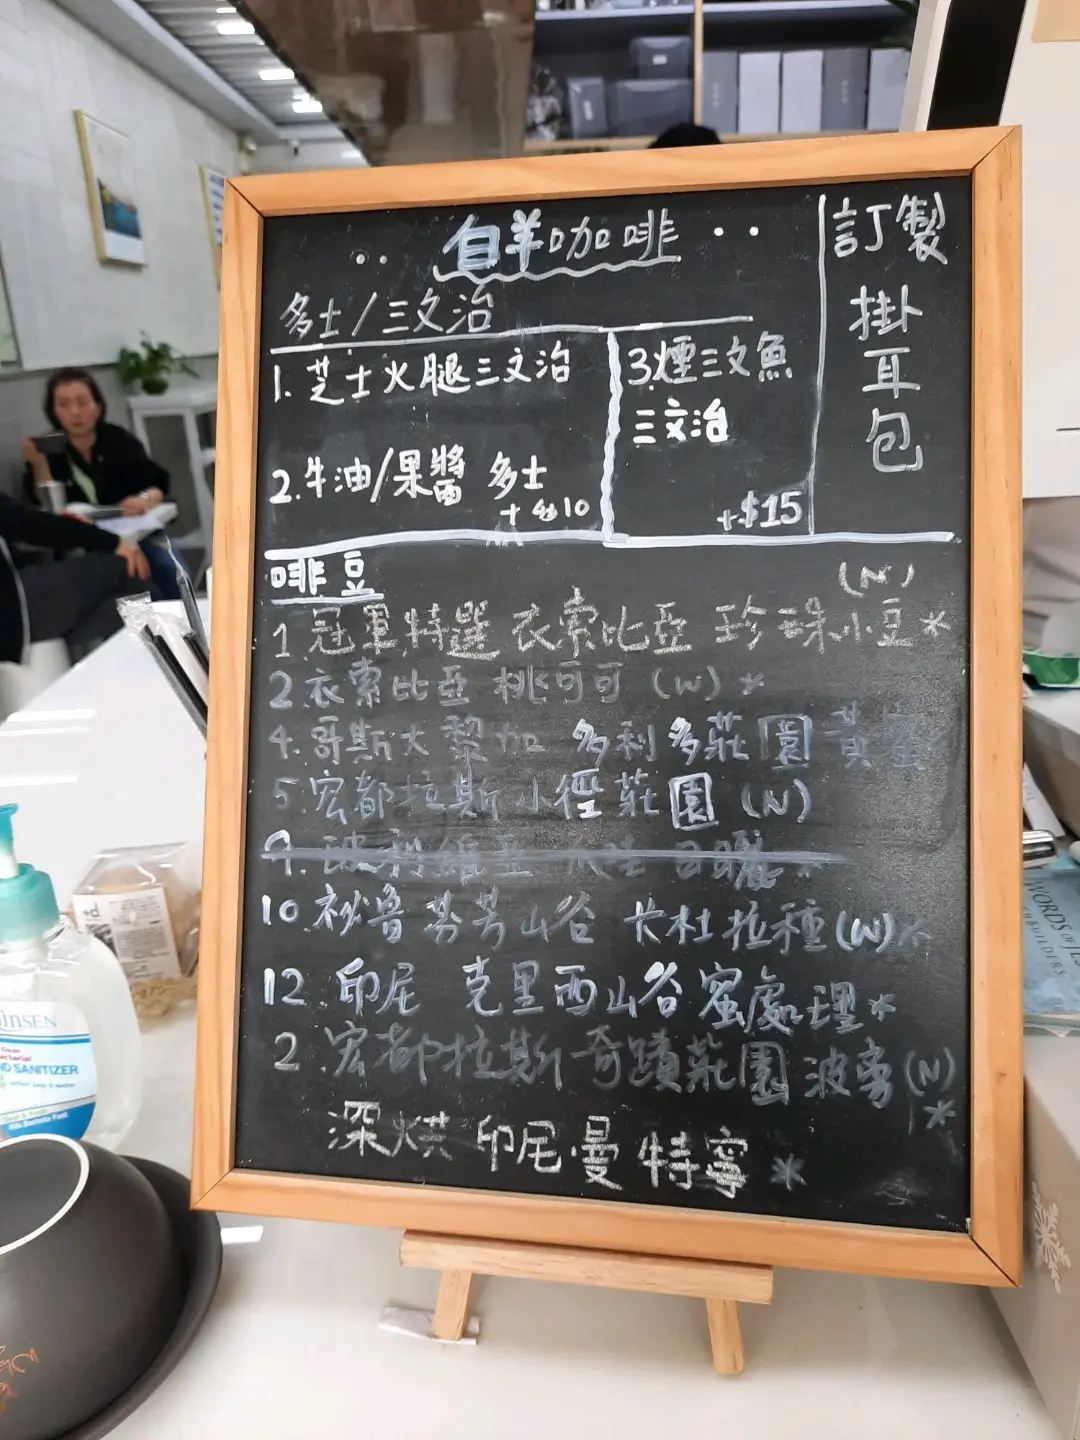 白羊咖啡
訂製
掛
耳
包
多士/三文治
1. 芝士火腿三文治
2. 牛油/果醬 多士
+$10
3. 煙三文魚
三文治
+$15
啡豆
(N)
1. 冠軍特選 衣索比亞 珍珠小豆*
2. 衣索比亞 桃可可 (W) *
4. 哥斯大黎加 多利多莊園 黃金
5. 宏都拉斯 小徑莊園 (N)
9. 玻利維亞 日曬 *
10. 祕魯 芬芳山谷 卡杜拉種(W)*
12. 印尼 克里西山谷 蜜處理*
2 宏都拉斯 奇蹟莊園 波旁(N)
*
深烘 印尼·曼特寧*
SANITIZER
WORDS OF